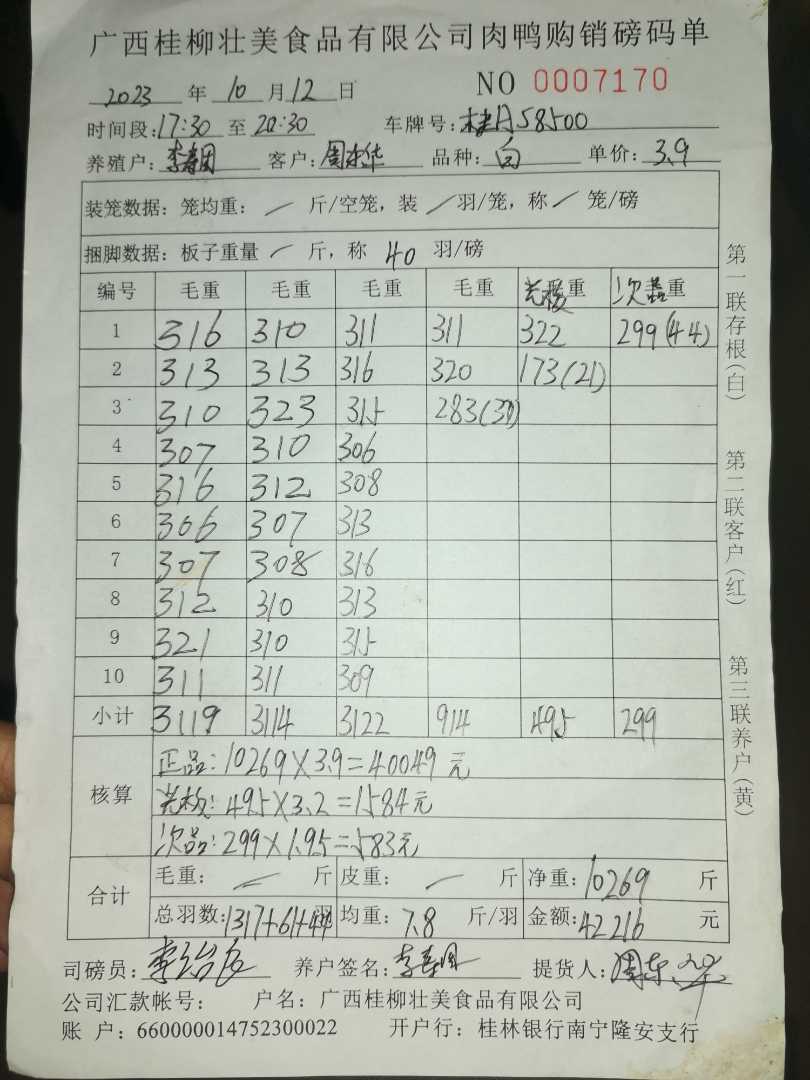 广西桂柳壮美食品有限公司肉鸭购销磅码单
2023 年 10 月 12 日 NO 0007170
时间段:17:30 至 20:30 车牌号:桂A58500
养殖户: 客户:周东华 品种:白 单价:3.9
装笼数据: 笼均重: / 斤/空笼, 装 / 羽/笼, 称 / 笼/磅
捆脚数据: 板子重量 / 斤, 称 40 羽/磅
编号 毛重 毛重 毛重 毛重 重 次品重
1 316 310 311 311 322 299(44)
2 313 313 316 320 173(21)
3 310 323 315 283
4 307 310 306
5 316 312 308
6 306 307 313
7 307 308 316
8 312 310 313
9 321 310 315
10 311 311 309
小计 3119 3114 3122 914 495 299
核算
正品:10269×3.9=40049元
495×3.2=1584元
次品:299×1.95=583元
合计
毛重: 斤 皮重: 斤 净重:10269 斤
总羽数:1317+61+44羽 均重:7.8 斤/羽 金额:42216 元
司磅员: 养户签名: 提货人:周东华
公司汇款帐号: 户名:广西桂柳壮美食品有限公司
账户:660000014752300022 开户行:桂林银行南宁隆安支行
第一联存根(白)
第二联客户(红)
第三联养户(黄)